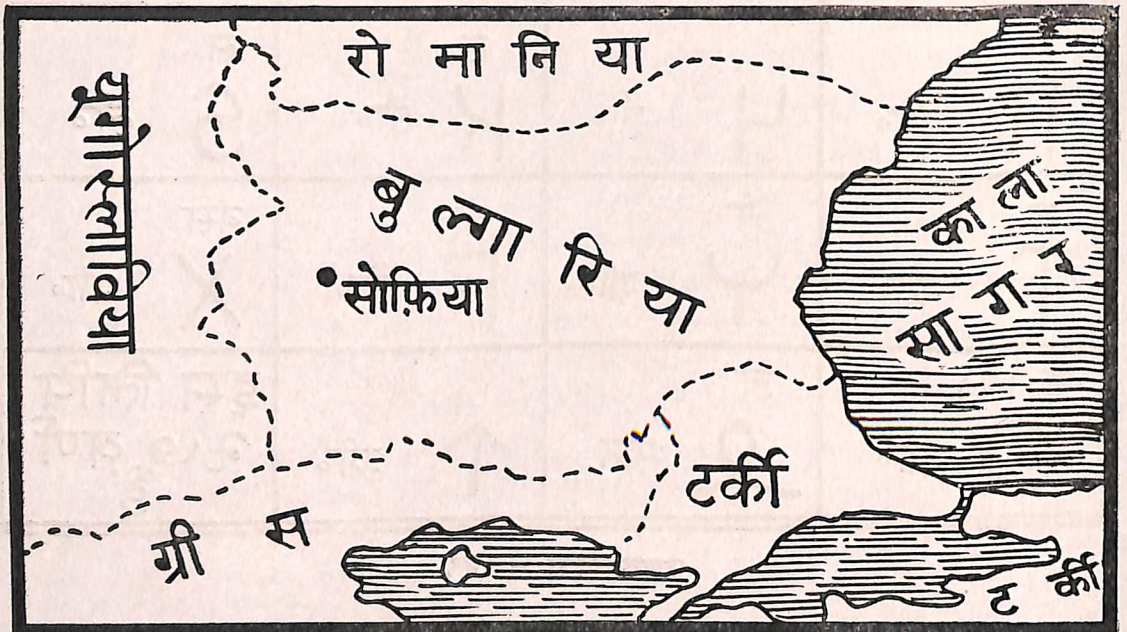 रो मा नि या
युगोस्लाविया
बुल्गारिया
सोफ़िया
काला
सागर
टर्की
ग्रीस
टर्की